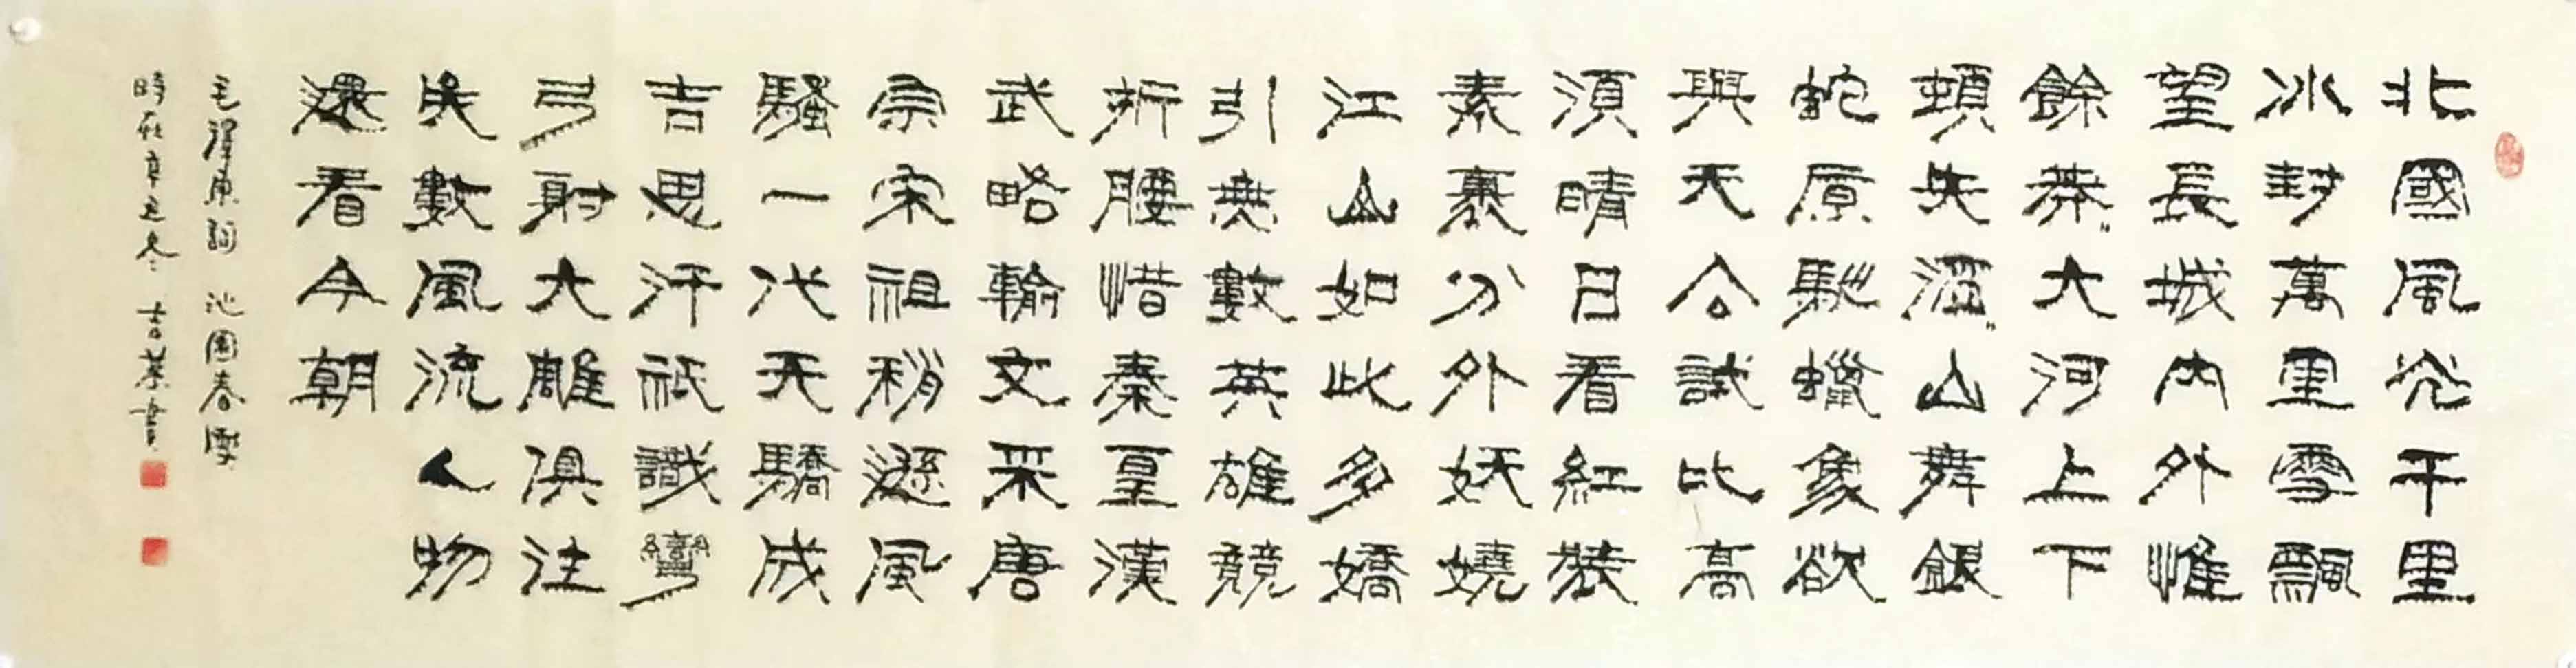 北國風光千里
冰封萬里雪飄
望長城內外惟
餘莽〻大河上下
頓失滔〻山舞銀
蛇原馳蠟象欲
與天公試比高
須晴日看紅裝
素裹分外妖嬈
江山如此多嬌
引無數英雄競
折腰惜秦皇漢
武略輸文采唐
宗宋祖稍遜風
騷一代天驕成
吉思汗祇識彎
弓射大雕俱往
矣數風流人物
還看今朝
毛澤東詞 沁園春雪
時在辛丑冬 吉書